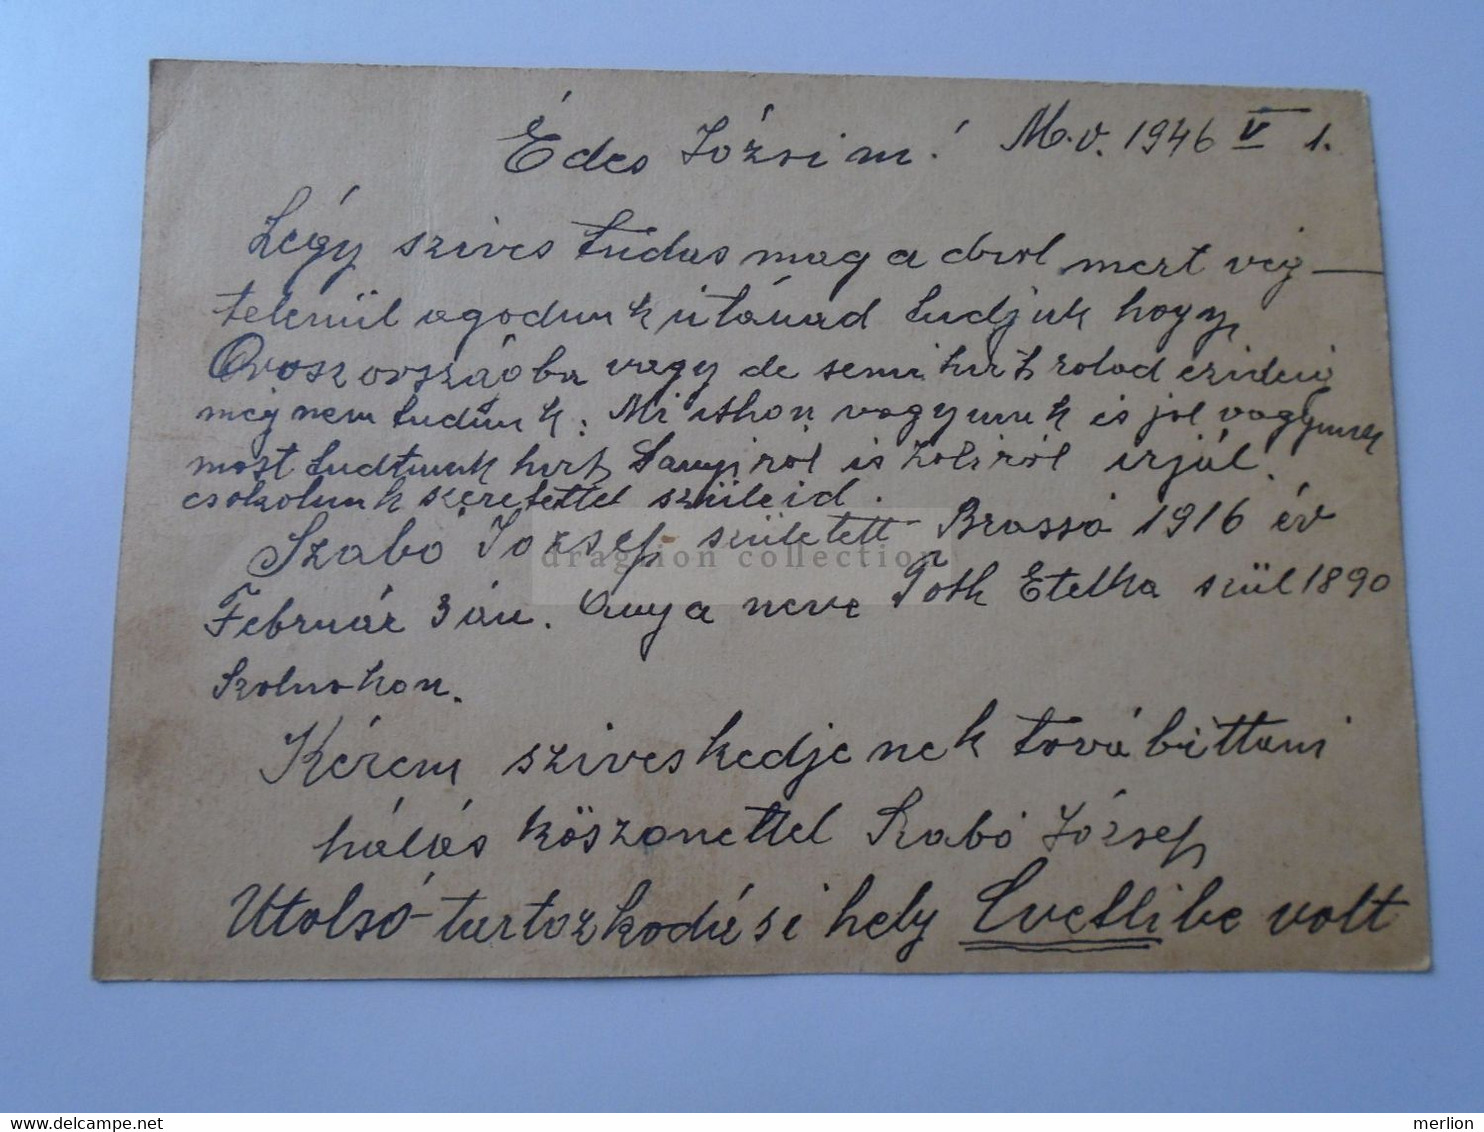 Édes Józsim! M.v. 1946 V 1.
Légy szives tudas magadrol mert vég-
telenül agodunk utánad tudjuk hogy
Oroszországba vagy de semi hirt rolad ezideig
még nem tudunk. Mi ithon vagyunk és jol vagyunk
most tudtunk hirt Sanyiról is Zoliról irjál.
csokolunk szeretettel szüleid.
Szabó József született Brassó 1916 év
Február 3 án. Anya neve Tóth Etelka szül 1890
Szolnokon.
Kérem sziveskedjenek továbittani
hálás köszönettel Szabó József
Utolsó tartozkodási hely volt
dragnion collection
merlion www.delcampe.net